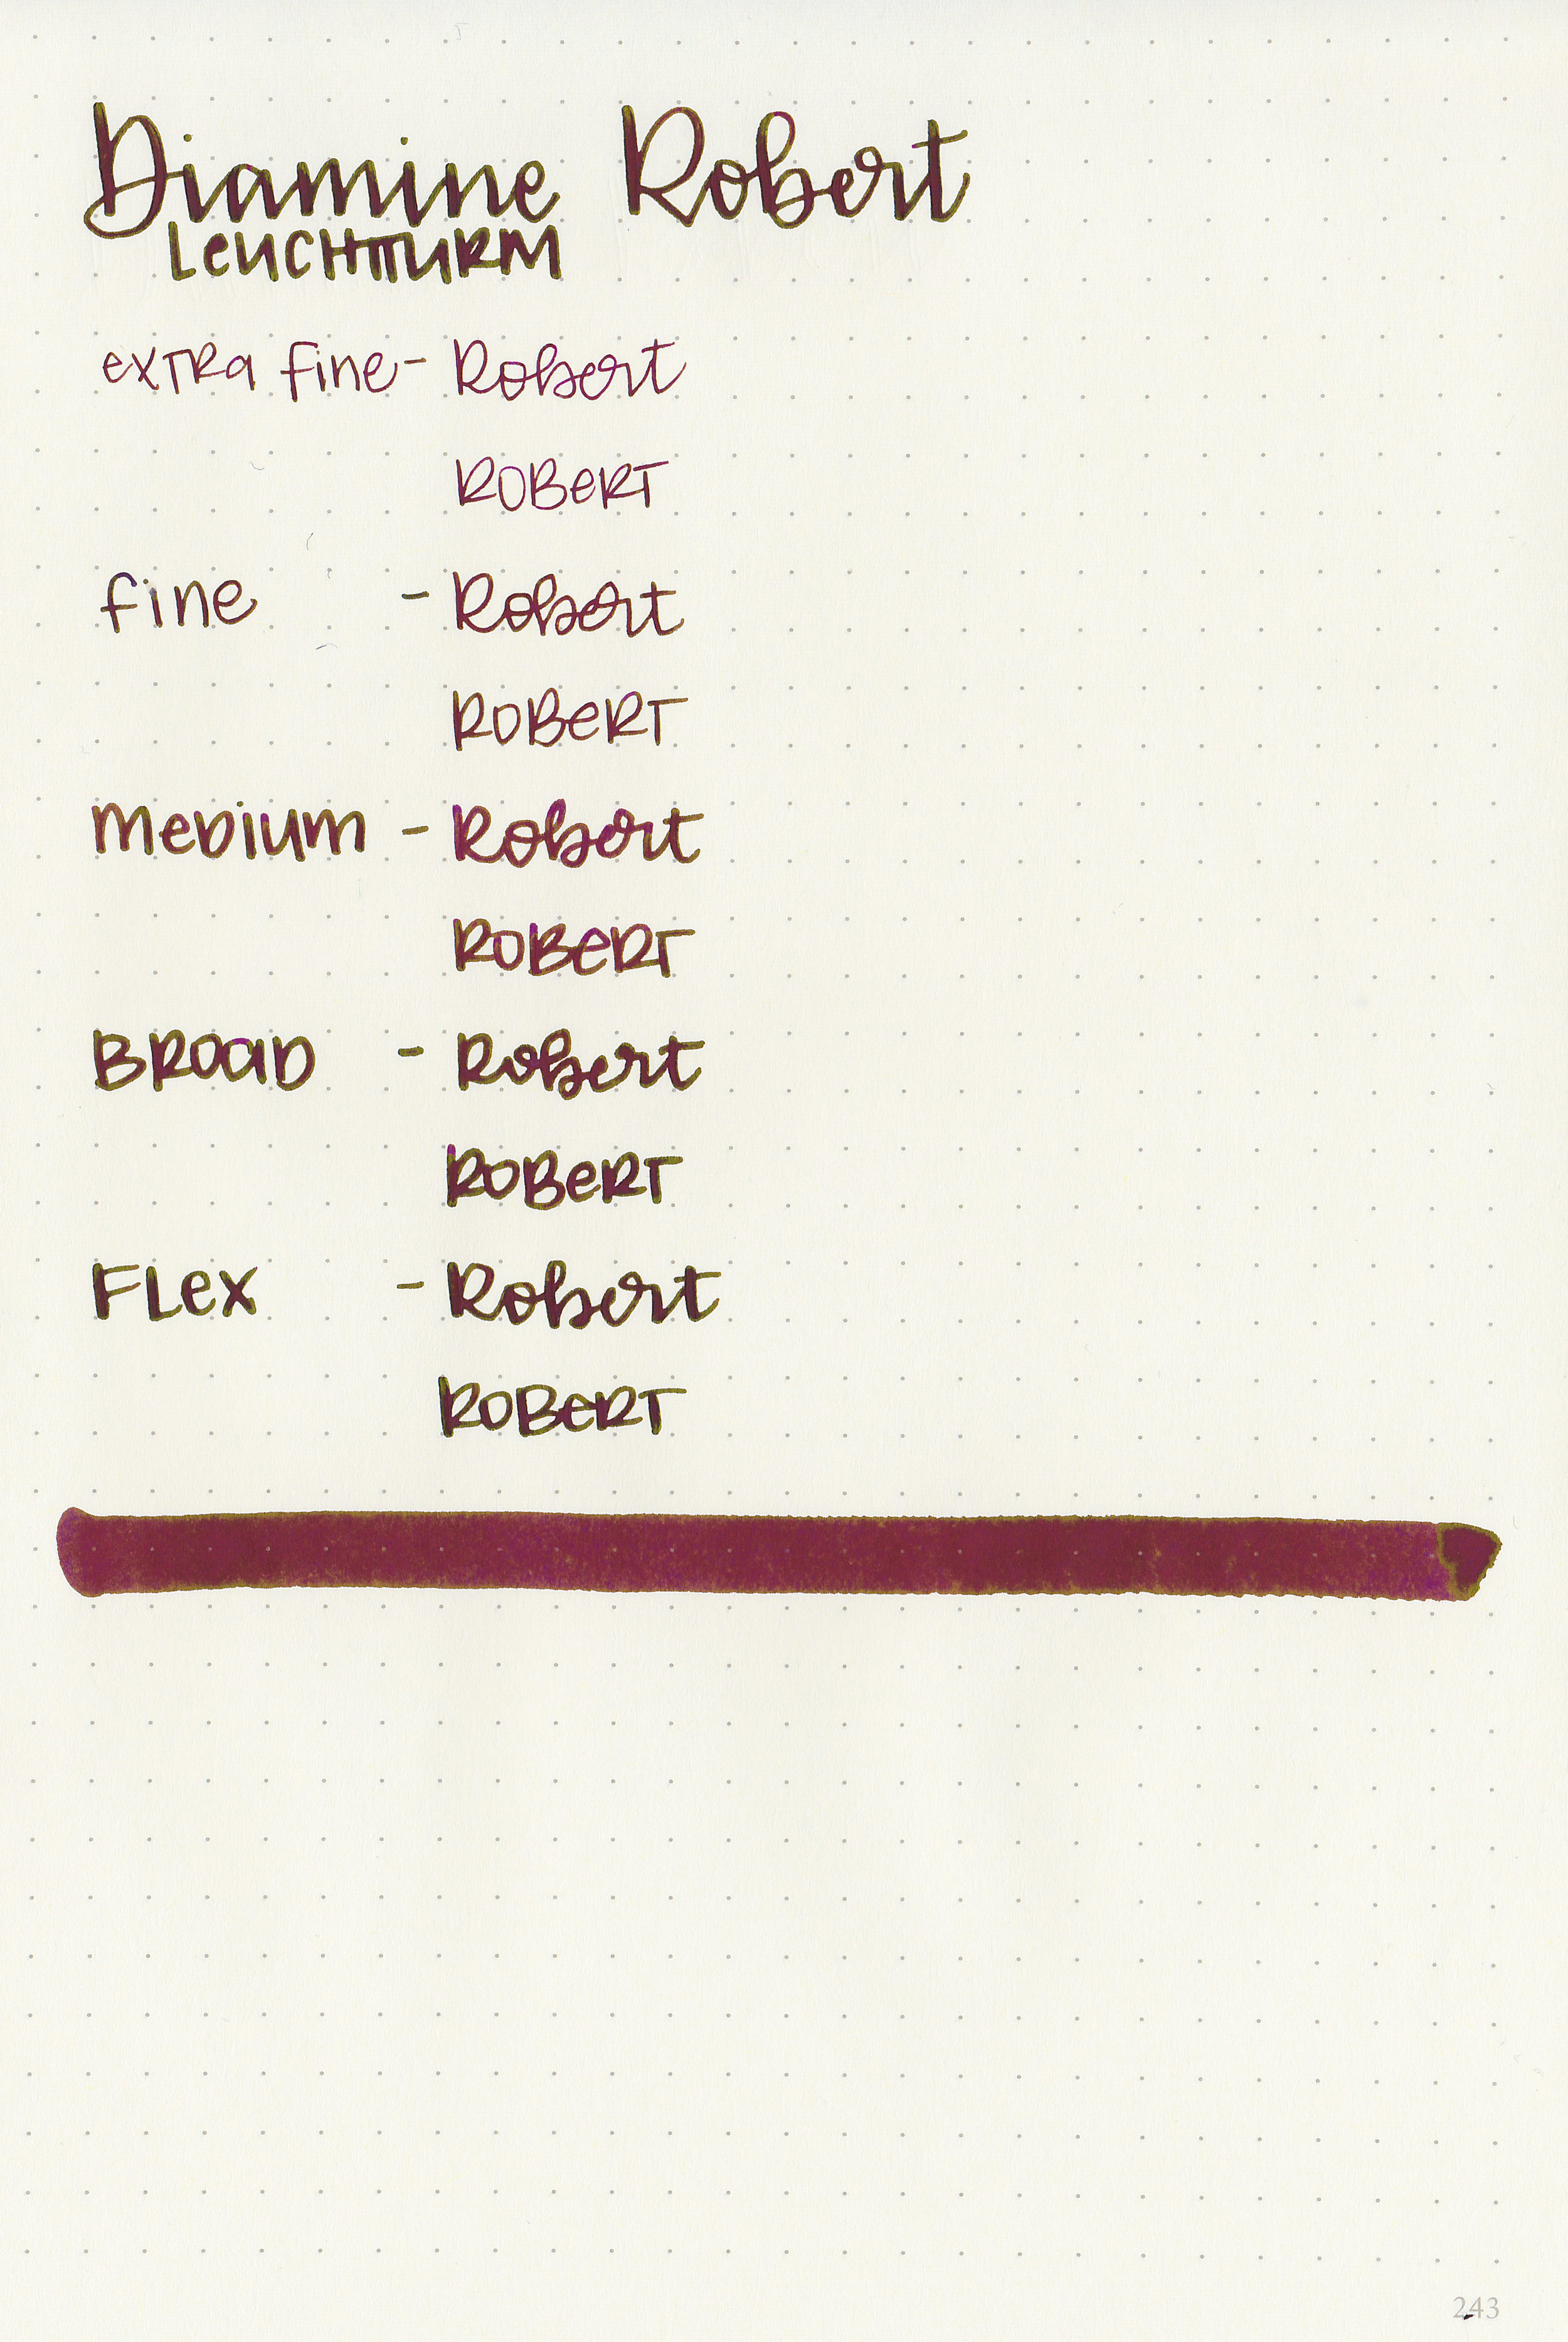 Diamine Robert
LEUCHTTURM
extra fine - Robert
ROBERT
fine - Robert
ROBERT
MEDIUM - Robert
ROBERT
BROAD - Robert
ROBERT
FLEX - Robert
ROBERT
243